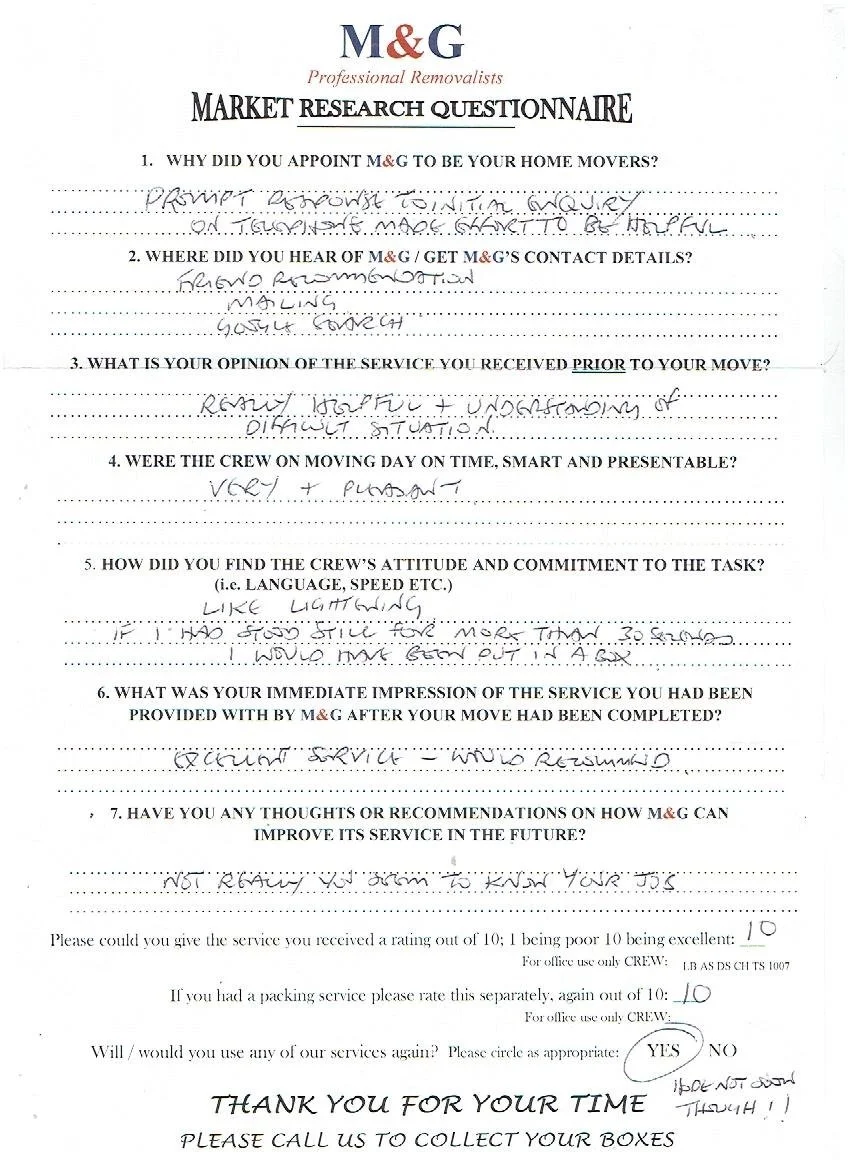 M&G
Professional Removalists
MARKET RESEARCH QUESTIONNAIRE
1. WHY DID YOU APPOINT M&G TO BE YOUR HOME MOVERS?
PROMPT RESPONSE TO INITIAL ENQUIRY
ON TELEPHONE MADE EFFORT TO BE HELPFUL
2. WHERE DID YOU HEAR OF M&G / GET M&G'S CONTACT DETAILS?
FRIEND RECOMMENDATION
MAILING
GOOGLE SEARCH
3. WHAT IS YOUR OPINION OF THE SERVICE YOU RECEIVED PRIOR TO YOUR MOVE?
REALLY HELPFUL + UNDERSTANDING OF
DIFFICULT SITUATION.
4. WERE THE CREW ON MOVING DAY ON TIME, SMART AND PRESENTABLE?
VERY + PLEASANT
5. HOW DID YOU FIND THE CREW'S ATTITUDE AND COMMITMENT TO THE TASK?
(i.e. LANGUAGE, SPEED ETC.)
LIKE LIGHTENING
IF I HAD STOOD STILL FOR MORE THAN 30 SECONDS
I WOULD HAVE BEEN PUT IN A BOX
6. WHAT WAS YOUR IMMEDIATE IMPRESSION OF THE SERVICE YOU HAD BEEN
PROVIDED WITH BY M&G AFTER YOUR MOVE HAD BEEN COMPLETED?
EXCELLENT SERVICE - WOULD RECOMMEND
7. HAVE YOU ANY THOUGHTS OR RECOMMENDATIONS ON HOW M&G CAN
IMPROVE ITS SERVICE IN THE FUTURE?
NOT REALLY YOU SEEM TO KNOW YOUR JOB
Please could you give the service you received a rating out of 10; 1 being poor 10 being excellent: 10
For office use only CREW: LB AS DS CH TS 1007
If you had a packing service please rate this separately, again out of 10: 10
For office use only CREW:
Will / would you use any of our services again? Please circle as appropriate: YES / NO
HOPE NOT SOON
THOUGH!!
THANK YOU FOR YOUR TIME
PLEASE CALL US TO COLLECT YOUR BOXES